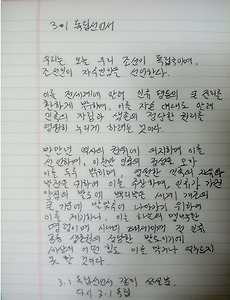 3·1 독립선언서
우리는 오늘 우리 조선이 독립국이며,
조선인이 자주민임을 선언한다.
이를 전세계에 알려 인류 평등의 큰 진리를
환하게 밝히며, 이를 자손 대대로 알려
민족의 자립과 생존의 정당한 권리를
영원히 누리게 하려는 것이다.
반만년 역사의 권위에 의지하여 이를
선언하며, 이천만 민족의 충성을 모아
이를 두루 밝히며, 영원한 민족의 자유와
발전을 위하여 이를 주장하며, 인류가 가진
양심의 발로에 뿌리박은 세계 개조의
큰 기운에 발맞추어 나아가기 위하여
이를 제기하니, 이는 하늘의 명백한
명령이며 시대의 대세이며 전 인류
공동 생존권의 정당한 발로이기에
세상의 어떤 힘도 이를 막거나 억누르지
못할 것이다.
3.1 독립선언서 같이
다시 3.1 독립